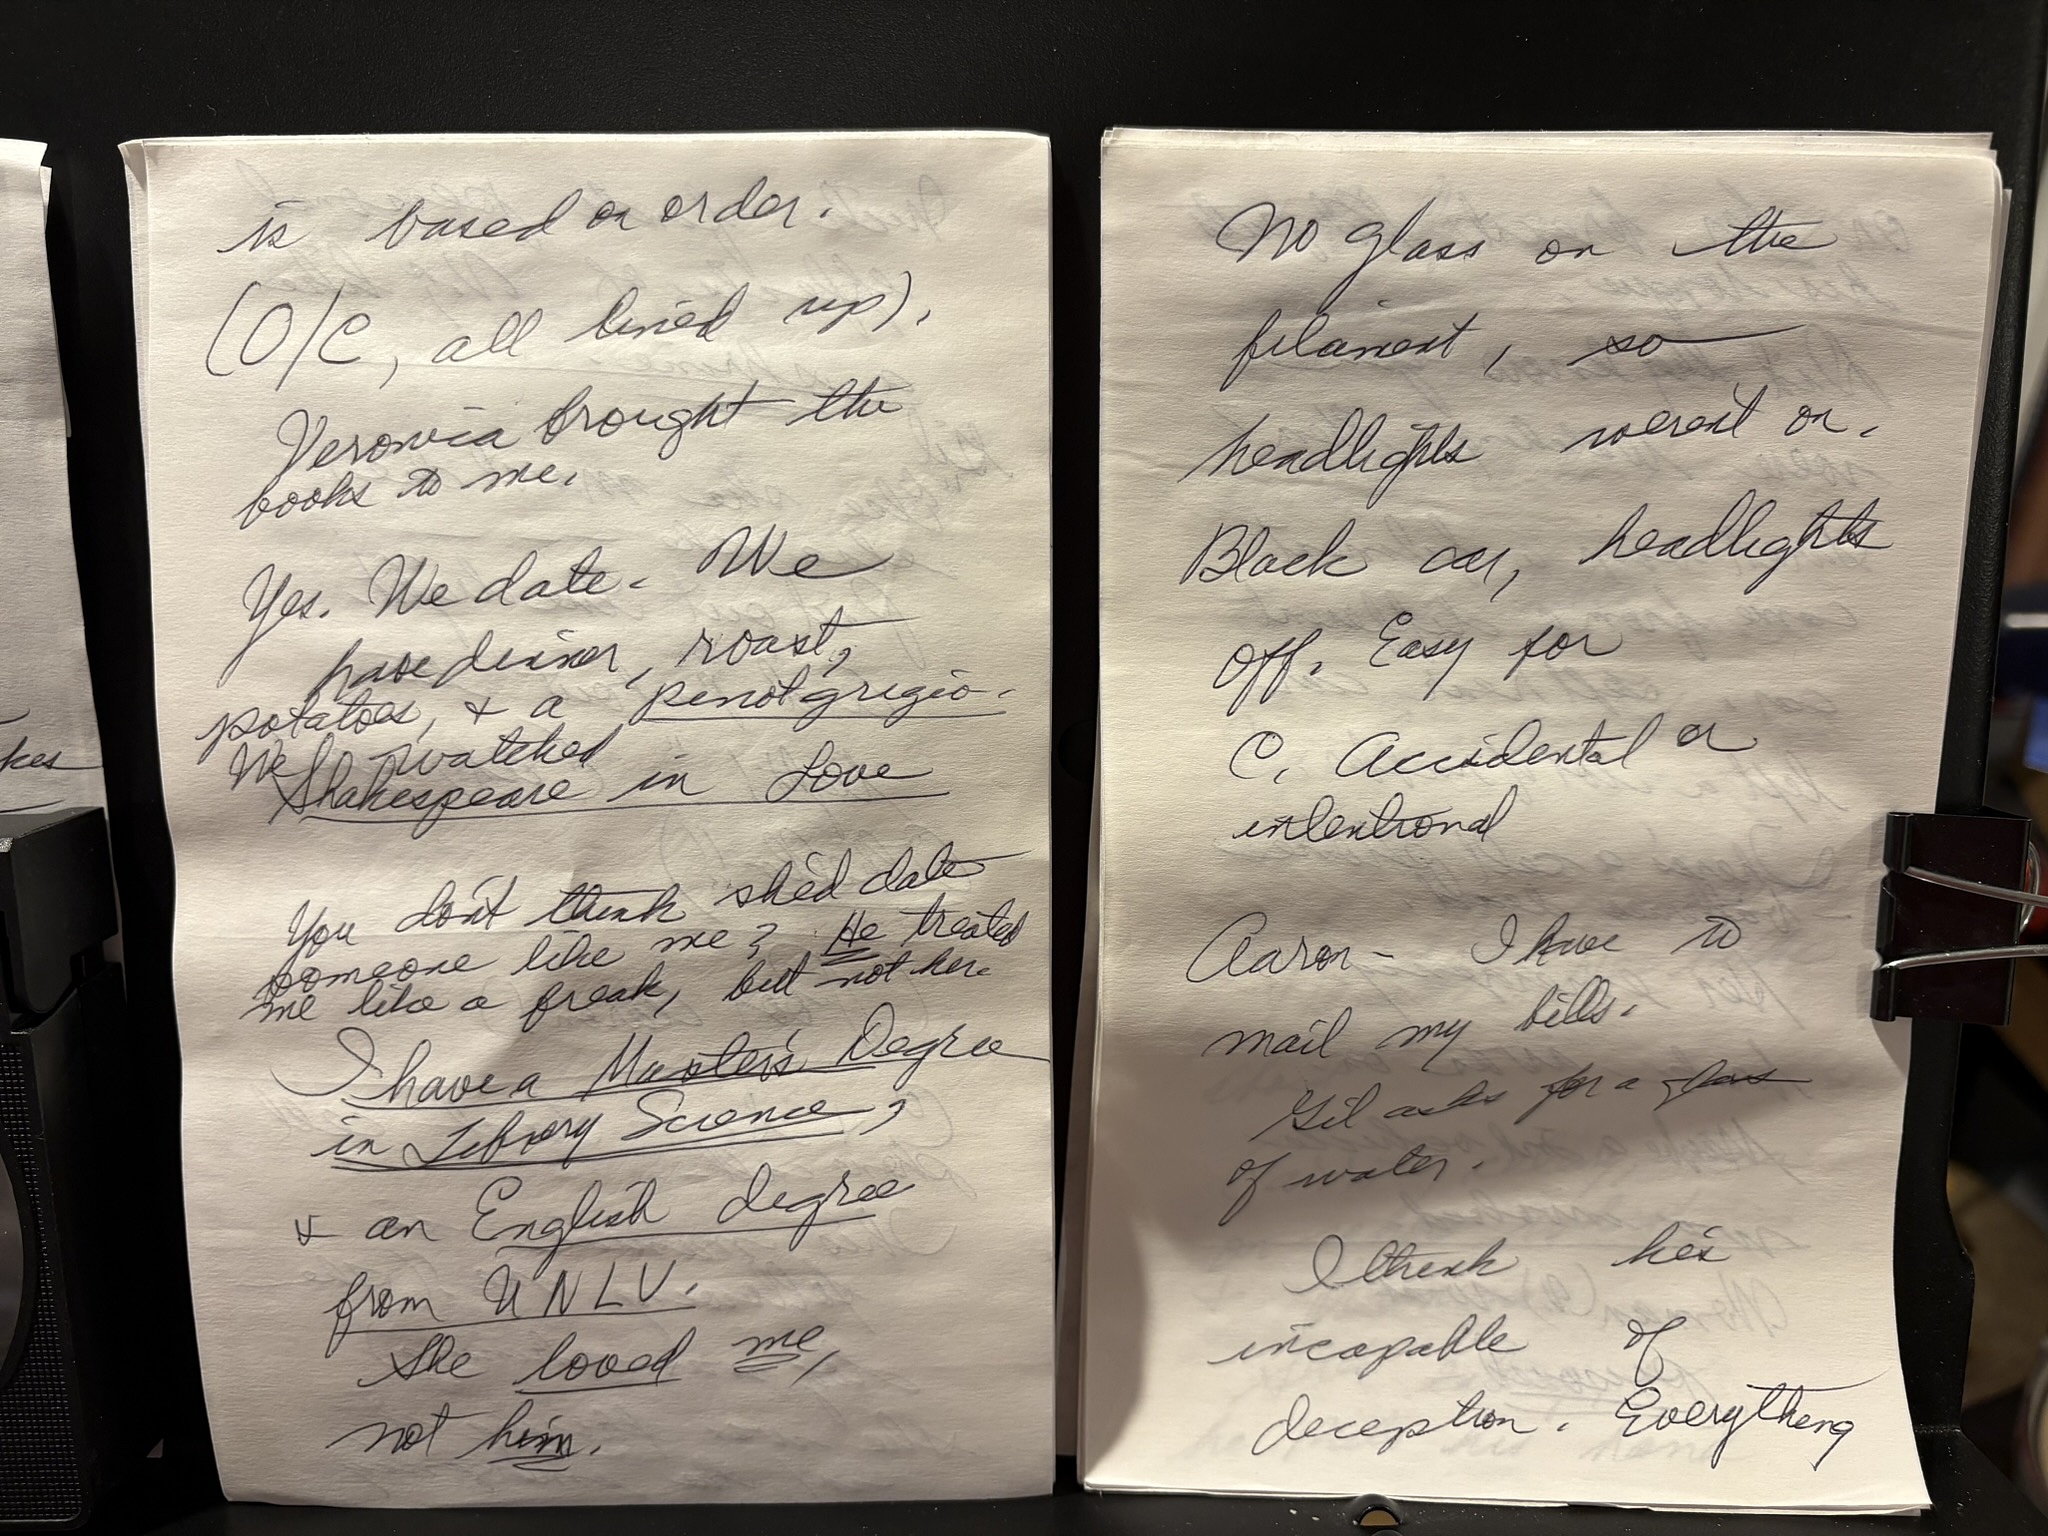 kes
is based on order.
(O/C, all lined up).
Veronica brought the
books to me.
Yes. We date - We
have dinner, roast,
potatoes, & a pinot grigio.
We watched
Shakespeare in Love
You don't think she'd date
someone like me? He treated
me like a freak, but not her.
I have a Master's Degree
in Library Science,
& an English degree
from UNLV.
She loved me,
not him.
No glass on the
filament, so
headlights weren't on.
Black car, headlights
off. Easy for
C. Accidental or
intentional
Aaron - I have to
mail my bills.
Gil asks for a glass
of water.
I think he's
incapable of
deception. Everything